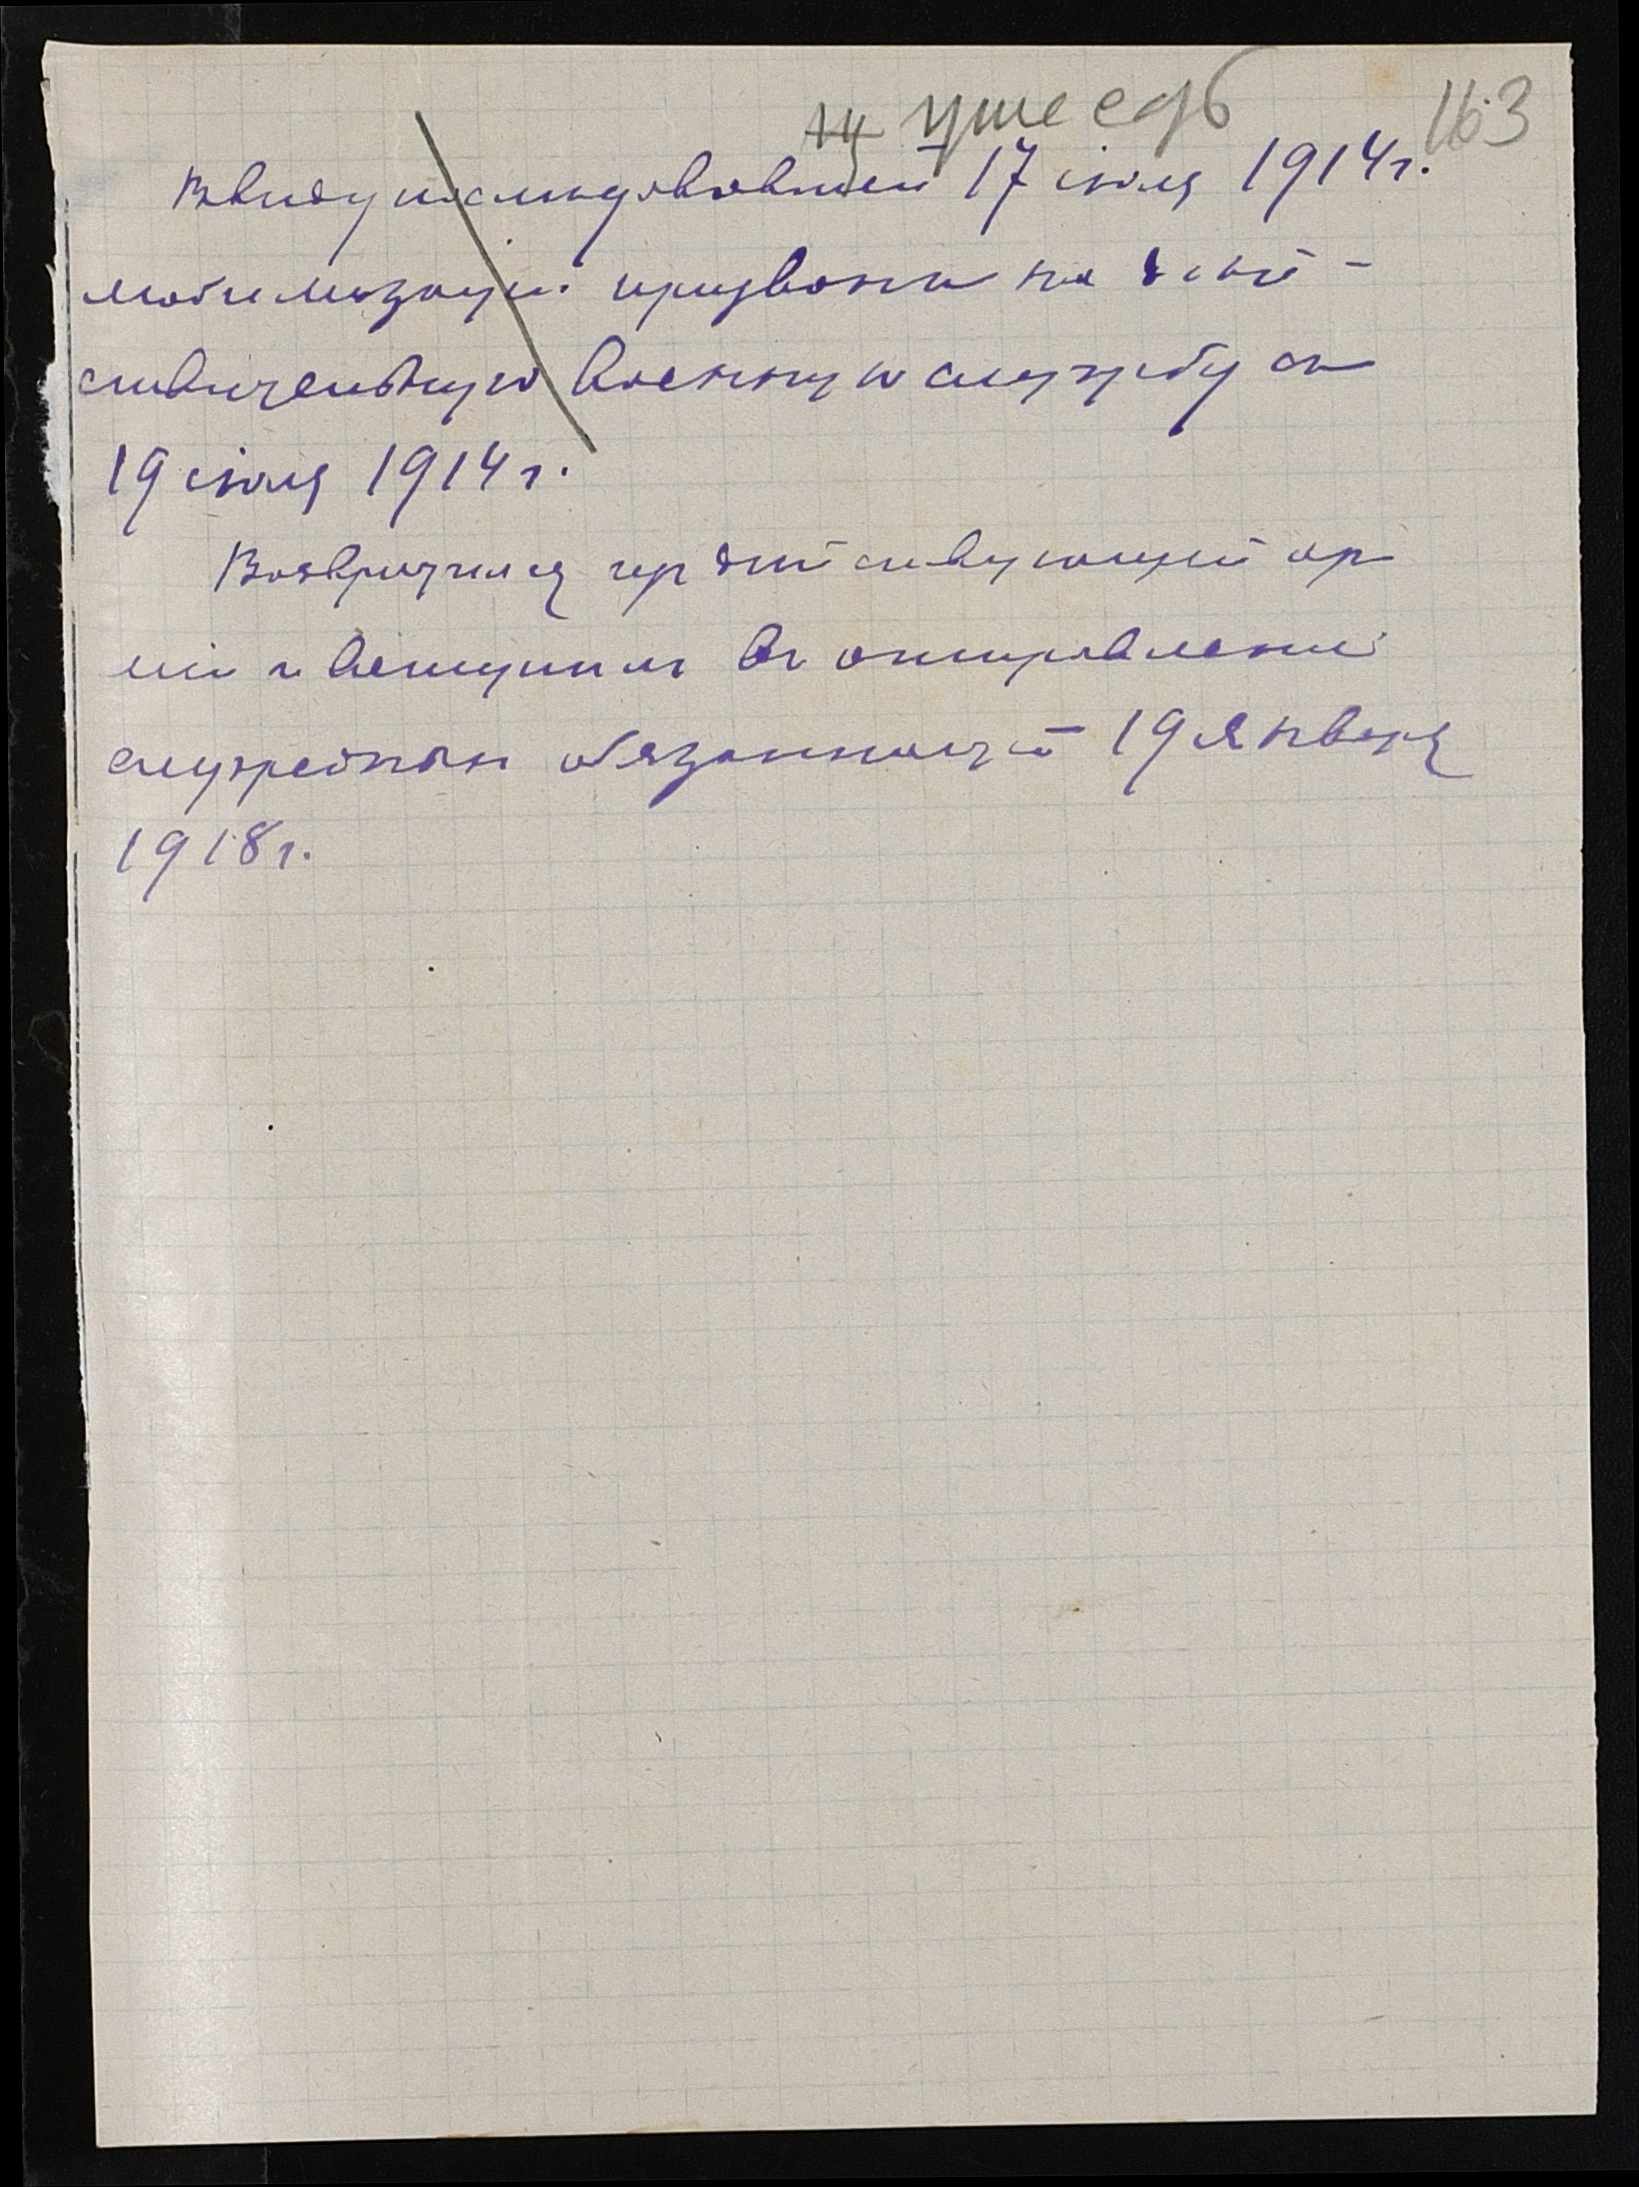 уже есть 163
Ввиду последовавшей 17 iюля 1914 г.
мобилизацiи призванъ на дѣй-
ствительную военную службу съ
19 iюля 1914 г.
Возвратился изъ дѣйствующей ар
мiи и вступилъ въ отправленiе
служебныхъ обязанностей 19 января
1918 г.